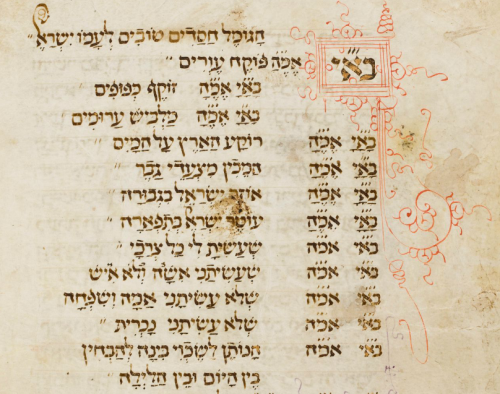 הגומל חסדים טובים לעמו ישראל
באי אמה פוקח עורים
באי אמה זוקף כפופים
באי אמה מלביש ערומים
באי אמה רוקע הארץ על המים
באי אמה המכין מצעדי גבר
באי אמה אוזר ישראל בגבורה
באי אמה עוטר ישראל בתפארה
באי אמה שעשית לי כל צרכי
באי אמה שעשיתני אשה ולא איש
באי אמה שלא עשיתני אמה ושפחה
באי אמה שלא עשיתני נכרית
באי אמה הנותן לשכוי בינה להבחין
בין היום ובין הלילה